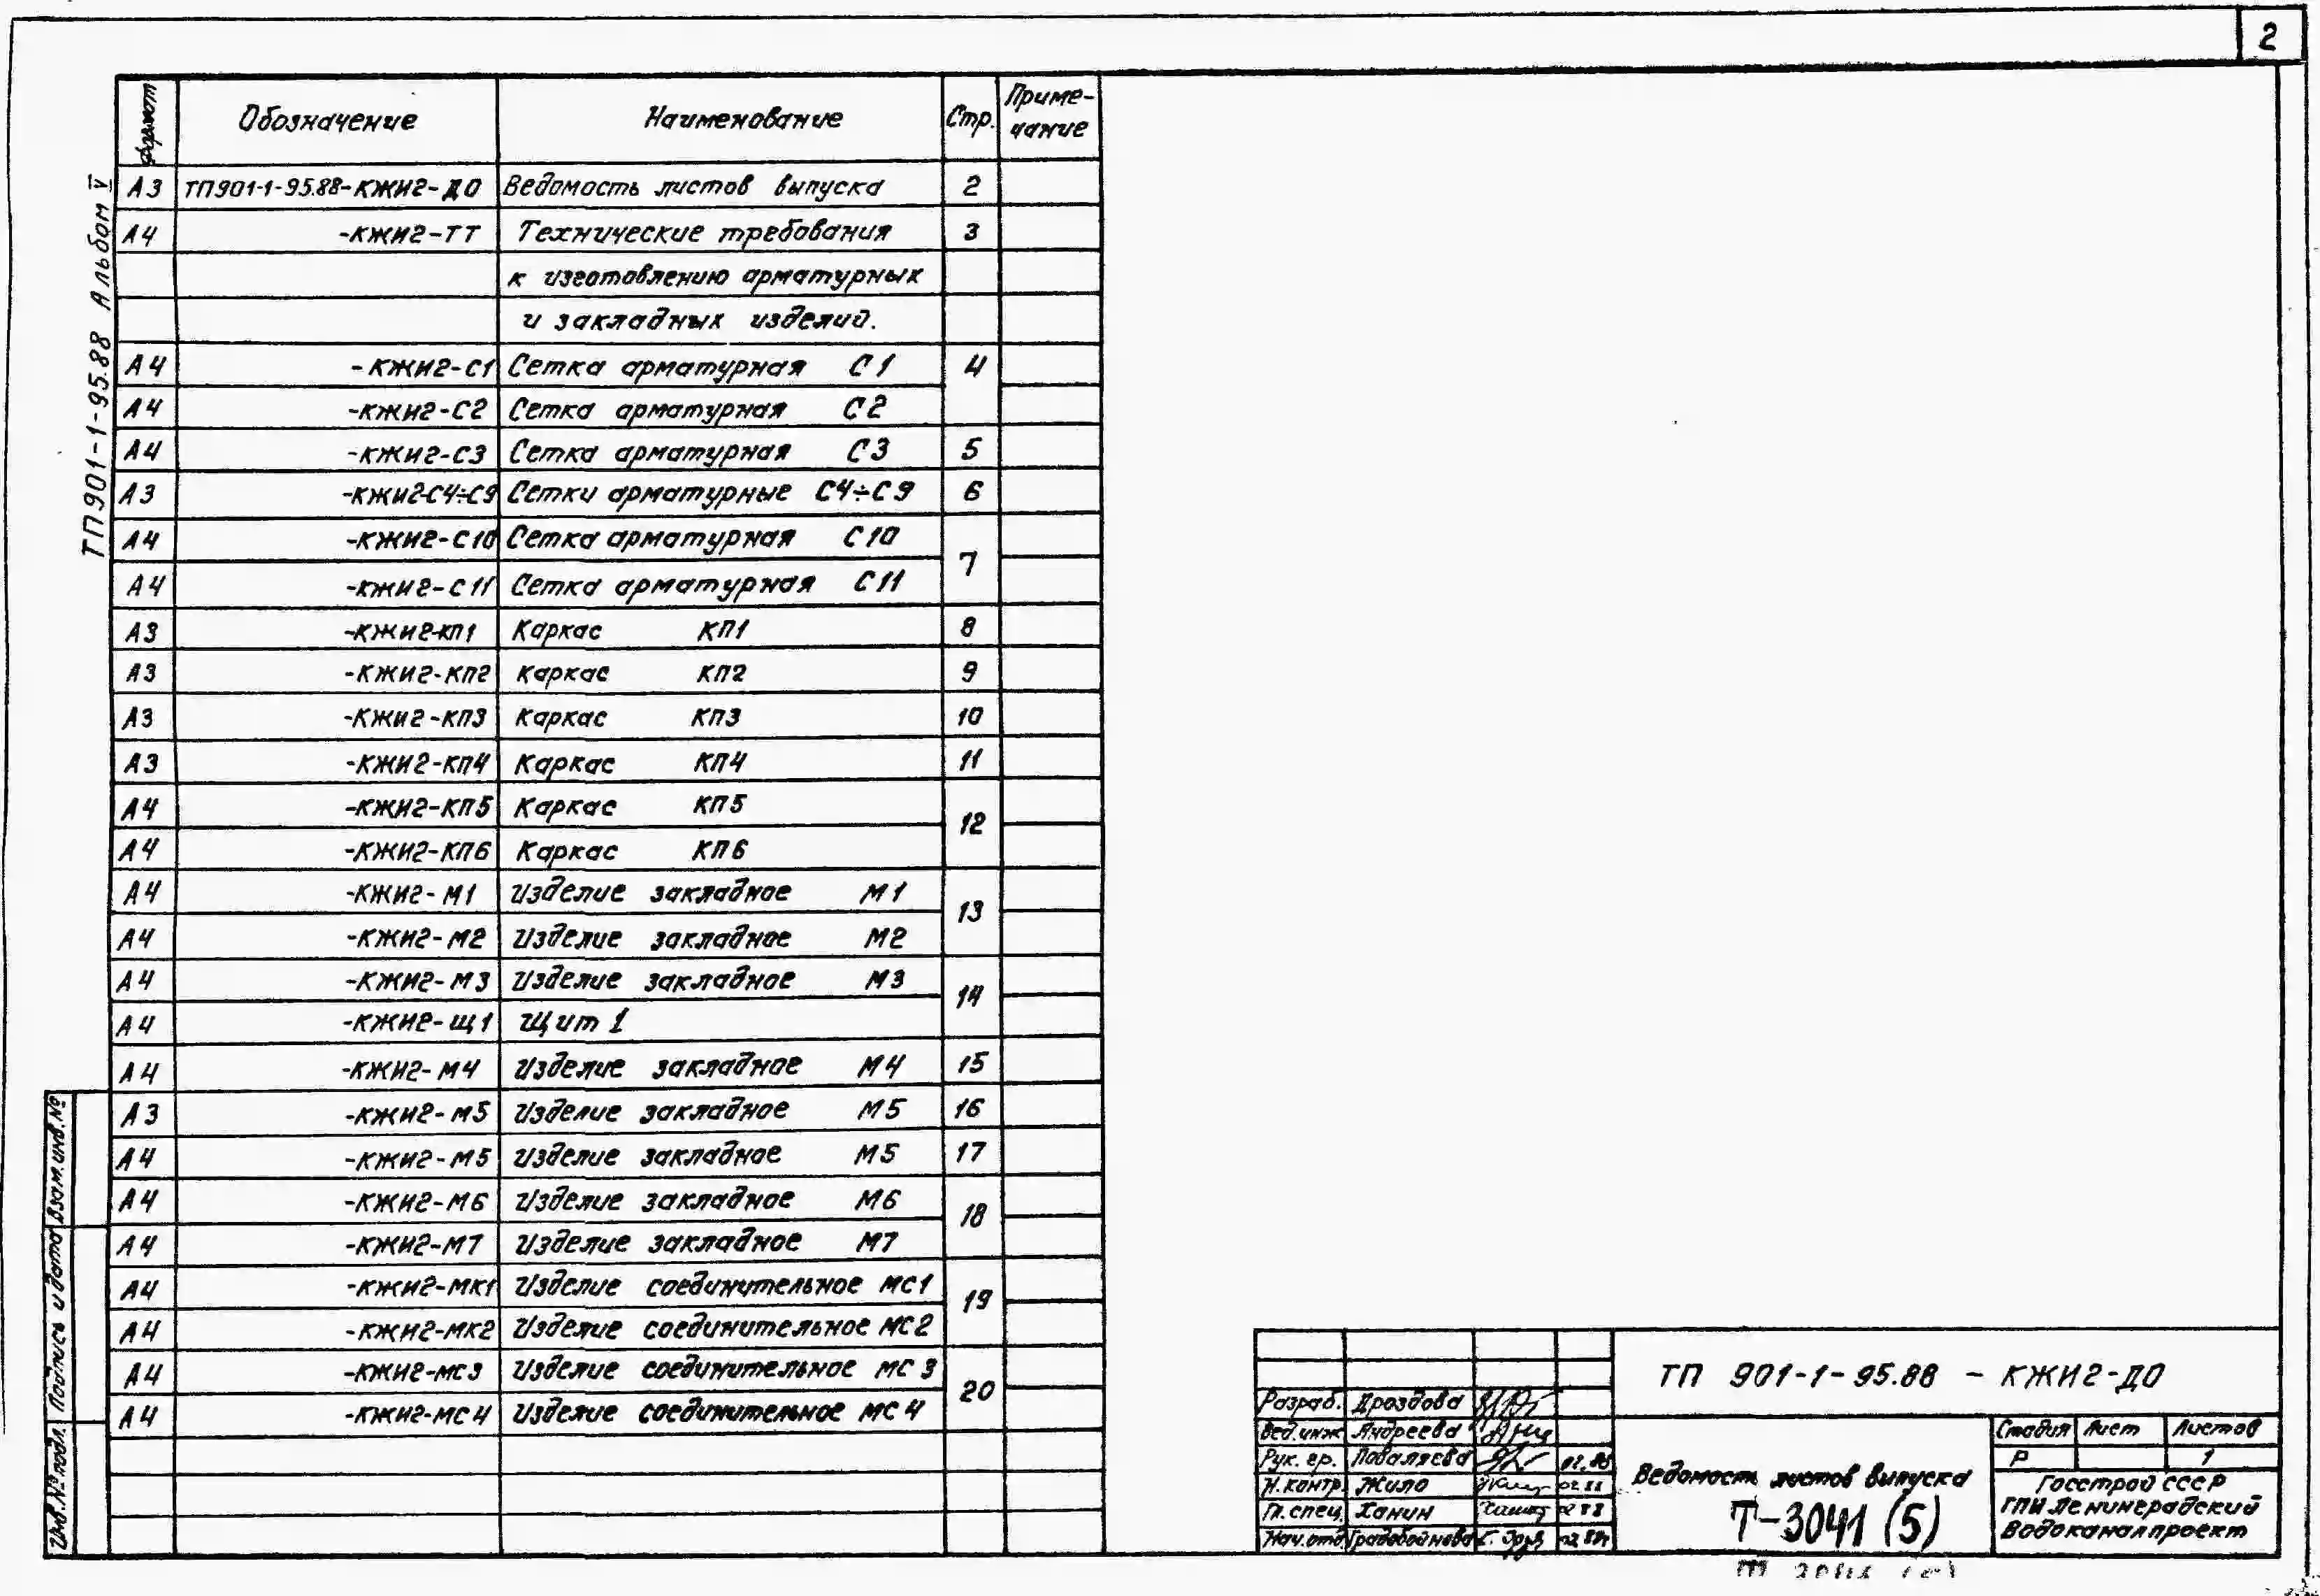 2
Формат Обозначение Наименование Стр. Приме-
чание
А3 ТП901-1-95.88-КЖИ2-ДО Ведомость листов выпуска 2
А4 -КЖИ2-ТТ Технические требования 3
к изготовлению арматурных
и закладных изделий.
А4 -КЖИ2-С1 Сетка арматурная С1 4
А4 -КЖИ2-С2 Сетка арматурная С2
А4 -КЖИ2-С3 Сетка арматурная С3 5
А3 -КЖИ2-С4÷С9 Сетки арматурные С4÷С9 6
А4 -КЖИ2-С10 Сетка арматурная С10 7
А4 -КЖИ2-С11 Сетка арматурная С11
А3 -КЖИ2-КП1 Каркас КП1 8
А3 -КЖИ2-КП2 Каркас КП2 9
А3 -КЖИ2-КП3 Каркас КП3 10
А3 -КЖИ2-КП4 Каркас КП4 11
А4 -КЖИ2-КП5 Каркас КП5 12
А4 -КЖИ2-КП6 Каркас КП6
А4 -КЖИ2-М1 Изделие закладное М1 13
А4 -КЖИ2-М2 Изделие закладное М2
А4 -КЖИ2-М3 Изделие закладное М3 14
А4 -КЖИ2-Щ1 Щит 1
А4 -КЖИ2-М4 Изделие закладное М4 15
А3 -КЖИ2-М5 Изделие закладное М5 16
А4 -КЖИ2-М5 Изделие закладное М5 17
А4 -КЖИ2-М6 Изделие закладное М6 18
А4 -КЖИ2-М7 Изделие закладное М7
А4 -КЖИ2-МК1 Изделие соединительное МС1 19
А4 -КЖИ2-МК2 Изделие соединительное МС2
А4 -КЖИ2-МС3 Изделие соединительное МС3 20
А4 -КЖИ2-МС4 Изделие соединительное МС4
ТП901-1-95.88 Альбом V
Взам.инв.№
Подпись и дата
Инв.№ подл.
ТП 901-1-95.88 - КЖИ2-ДО
Разраб. Дроздова
Вед.инж Андреева
Рук. гр. Поваляева 02.88
Н.контр. Жило 02 88
Гл.спец. Ханин 02 88
Нач.отд. Градобойнова 02.88г
Ведомость листов выпуска
Т-3041 (5)
Стадия Лист Листов
Р 1
Госстрой СССР
ГПИ Ленинградский
Водоканалпроект